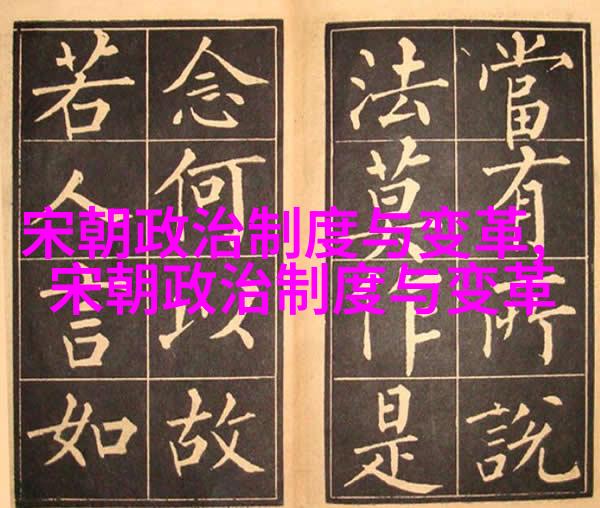 當有所說
法莫作是
念何以故
若人言如
宋朝政治制度与变革,
宋朝政治制度与变革